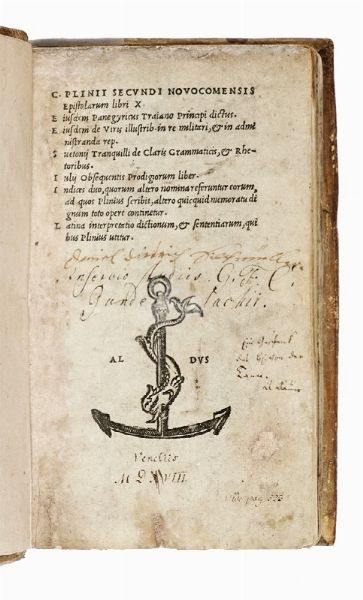 C. PLINII SECVNDI NOVOCOMENSIS
Epistolarum libri X.
E iusdem Panegyricus Traiano Principi dictus.
E iusdem de Viris illustrib. in re militari, & in admi
nistranda rep.
S uetonij Tranquilli de Claris Grammaticis, & Rhe-
toribus.
I ulij Obsequentis Prodigiorum liber.
I ndices duo, quorum altero nomina referuntur eorum,
ad quos Plinius scribit, altero quicquid memoratu di
gnum toto opere continetur.
L atina interpretatio dictionum, & sententiarum, qui
bus Plinius utitur.
Inservio
AL DVS
Venetiis
M D XVIII
pag. 525